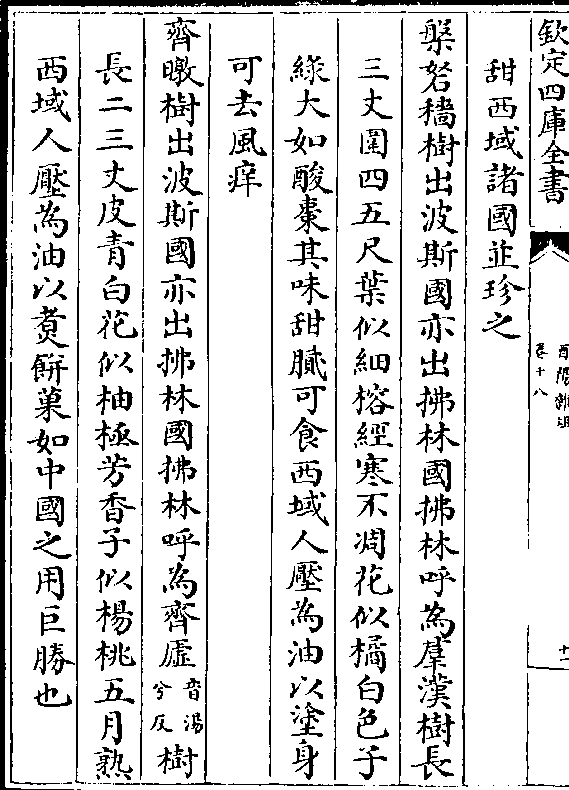 欽定四庫全書
酉陽雜俎
卷十八
十一
甜西域諸國並珍之
槃砮穡樹出波斯國亦出拂林國拂林呼為羣漢樹長
三丈圍四五尺葉似細榕經寒不凋花似橘白色子
綠大如酸棗其味甜膩可食西域人壓為油以塗身
可去風痒
齊暾樹出波斯國亦出拂林國拂林呼為齊虛音湯兮反樹
長二三丈皮青白花似柚極芳香子似楊桃五月熟
西域人壓為油以煑餅菓如中國之用巨勝也